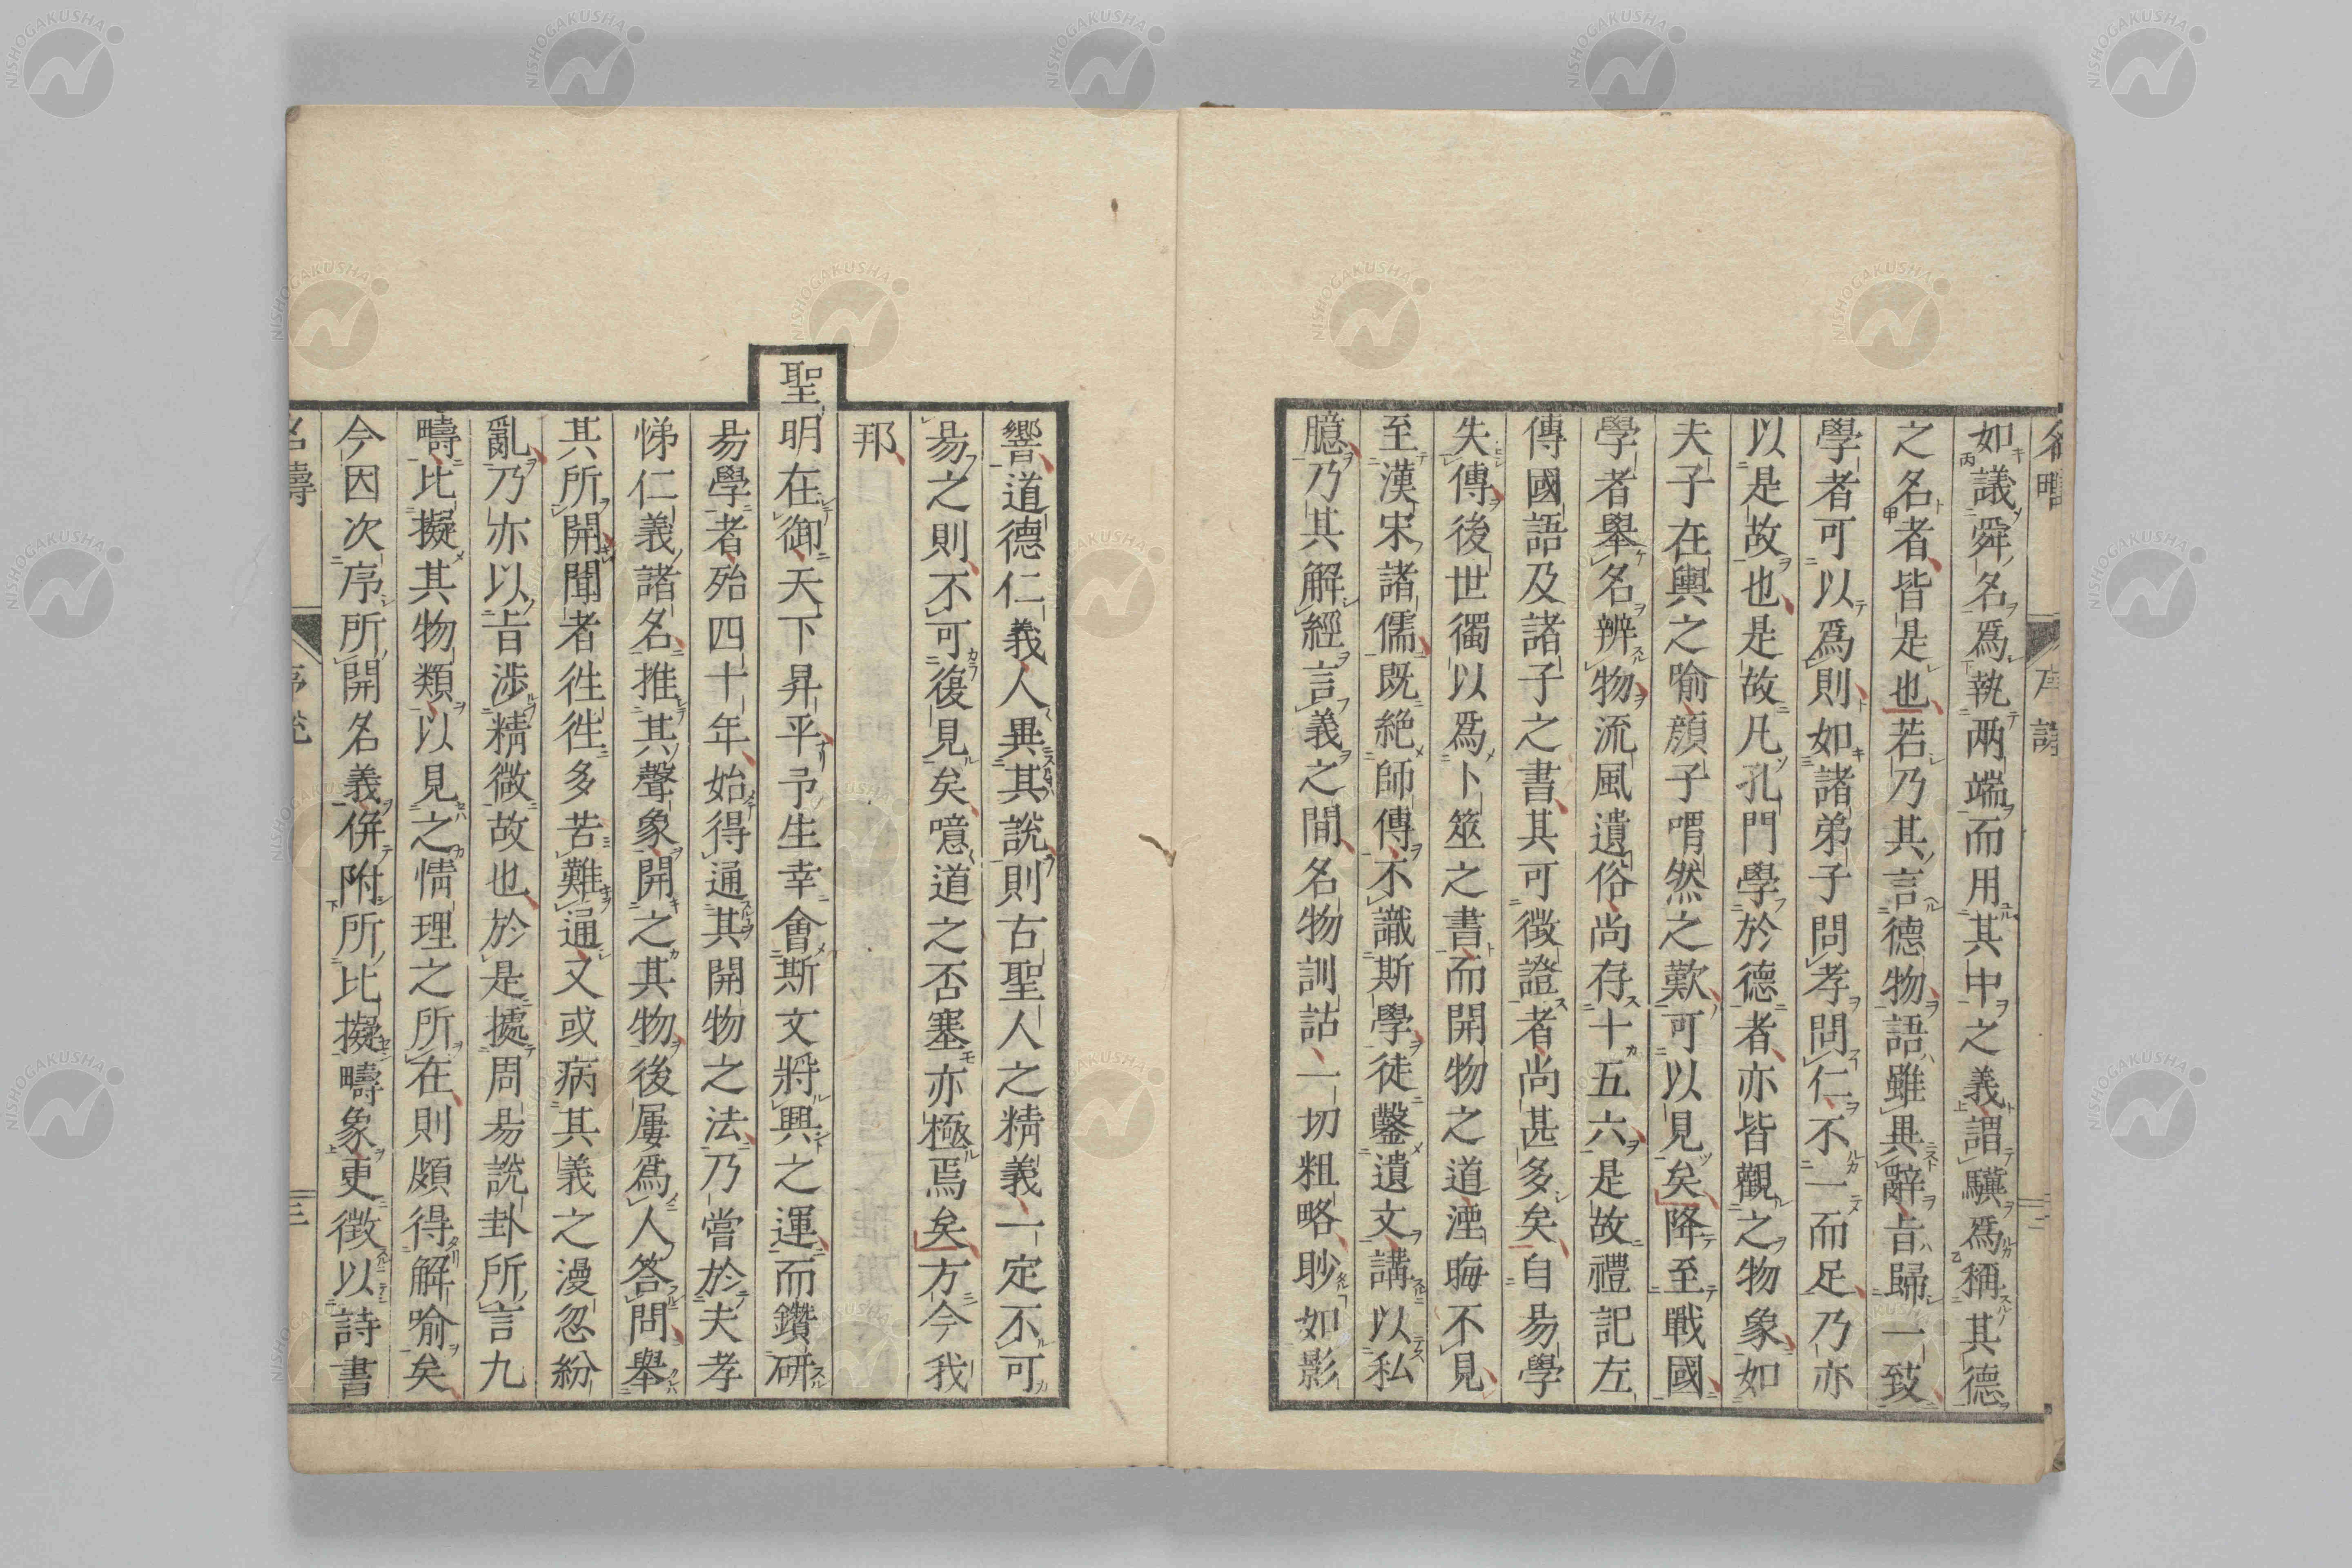 如議舜名爲執兩端而用其中之義謂驥爲稱其德
之名者皆是也若乃其言德物語雖異辭旨歸一致
學者可以爲則如諸弟子問孝問仁不一而足乃亦
以是故也是故凡孔門學於德者亦皆觀之物象如
夫子在輿之喻顏子喟然之歎可以見矣降至戰國
學者舉名辨物流風遺俗尚存十五六是故禮記左
傳國語及諸子之書其可徵證者尚甚多矣自易學
失傳後世獨以爲卜筮之書而開物之道湮晦不見
至漢宋諸儒既絶師傳不識斯學徒鑿遺文講以私
臆乃其解經言義之間名物訓詁一切粗略眇如影
響道德仁義人異其說則古聖人之精義一定不可
易之則不可復見矣噫道之否塞亦極焉矣方今我
邦
聖明在御天下昇平予生幸會斯文將興之運而鑽研
易學者殆四十年始得通其開物之法乃嘗於夫孝
悌仁義諸名推其聲象開之其物後屢爲人答問舉
其所開聞者徃徃多苦難通又或病其義之漫忽紛
亂乃亦以旨涉精微故也於是據周易說卦所言九
疇比擬其物類以見之情理之所在則頗得解喻矣
今因次序所開名義併附所比擬疇象更徵以詩書
名疇
序
三
NISHOGAKUSHA